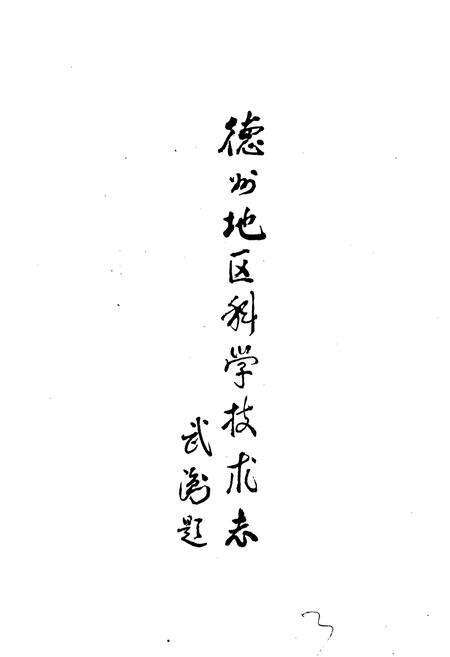 德州地区科学技术志
武衡题